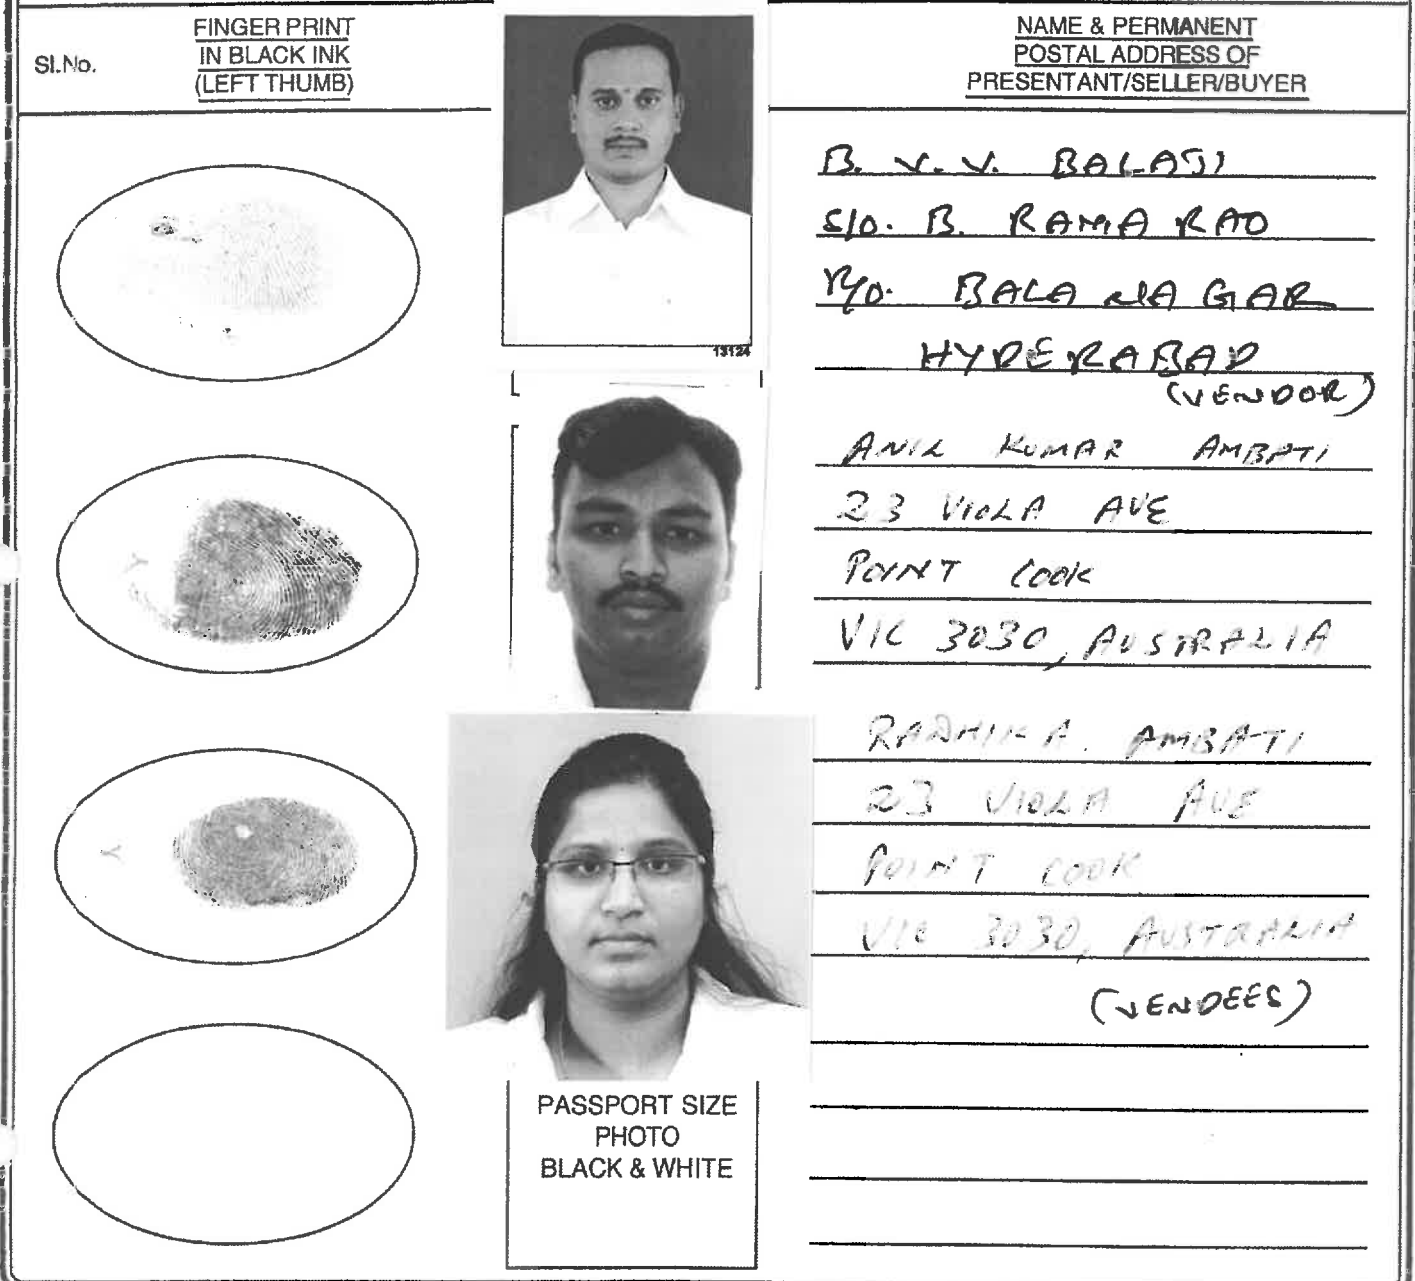 Sl.No.
FINGER PRINT
IN BLACK INK
(LEFT THUMB)
NAME & PERMANENT
POSTAL ADDRESS OF
PRESENTANT/SELLER/BUYER
B. V. V. BALAJI
S/o. B. RAMA RAO
R/o. BALA NAGAR
HYDERABAD
(VENDOR)
13124
ANIL KUMAR AMBATI
23 VIOLA AVE
POINT COOK
VIC 3030, AUSTRALIA
RADHIKA. AMBATI
23 VIOLA AVE
POINT COOK
VIC 3030, AUSTRALIA
(VENDEES)
PASSPORT SIZE
PHOTO
BLACK & WHITE